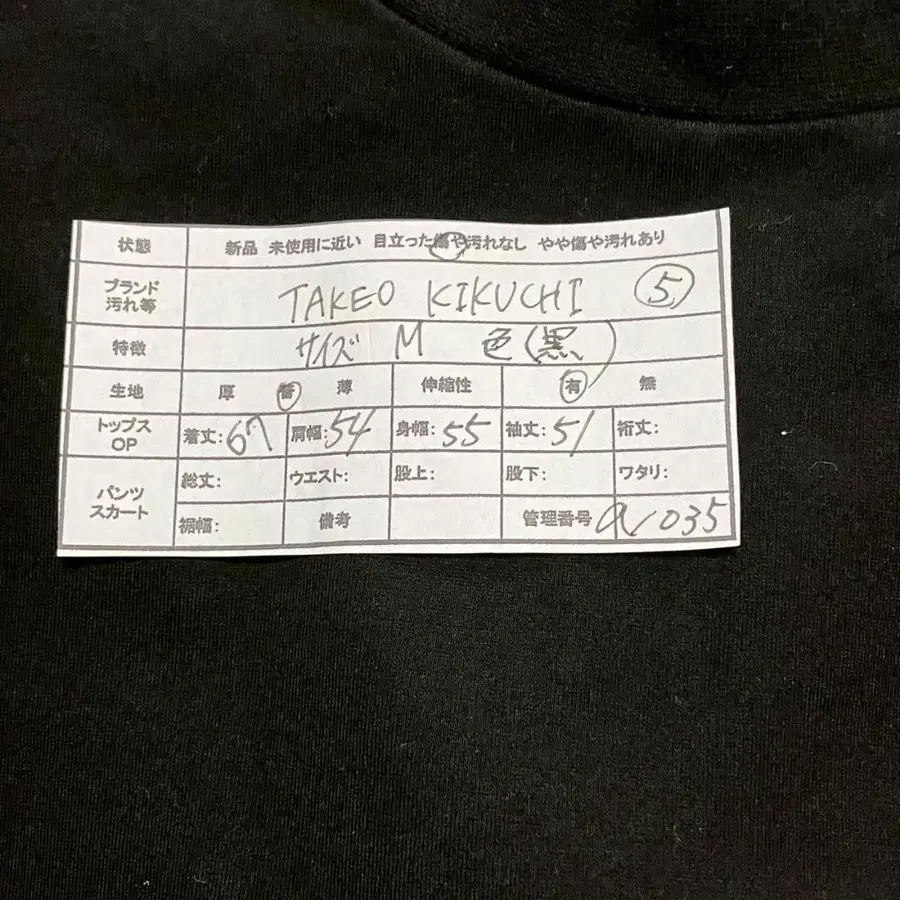 状態 新品 未使用に近い 目立った傷や汚れなし やや傷や汚れあり
ブランド
汚れ等
TAKEO KIKUCHI 5
特徴 サイズ M 色(黒)
生地 厚 普 薄 伸縮性 有 無
トップス
OP
着丈:67 肩幅:54 身幅:55 袖丈:51 裄丈:
パンツ
スカート
総丈: ウエスト: 股上: 股下: ワタリ:
裾幅: 備考 管理番号 a1035